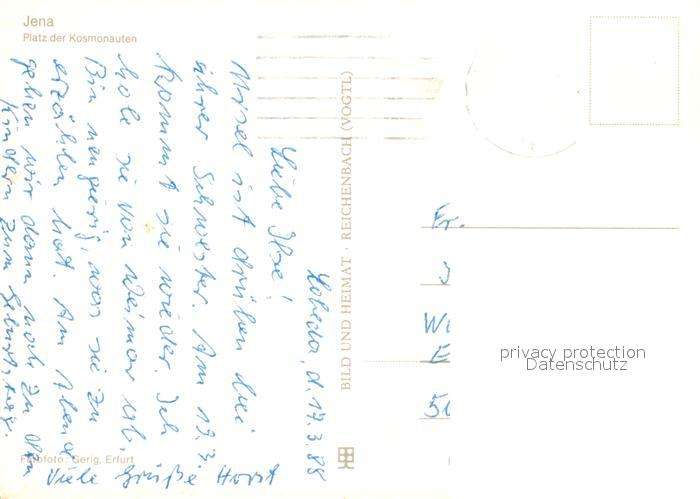 Jena
Platz der Kosmonauten
Lobeda, d. 17.3.88
Liebe Ilse!
ist drüben bei
ihrer Schwester. Am 19.3.
kommt sie wieder. Ich
hole sie von Weimar ab.
Bin neugierig, was sie zu
erzählen hat. Am Abend
gehen wir dann noch zu den
Kindern zum Geburtstag.
Viele Grüße Horst
BILD UND HEIMAT · REICHENBACH (VOGTL)
Fr.
Wi
E
privacy protection
Datenschutz
Gerig, Erfurt